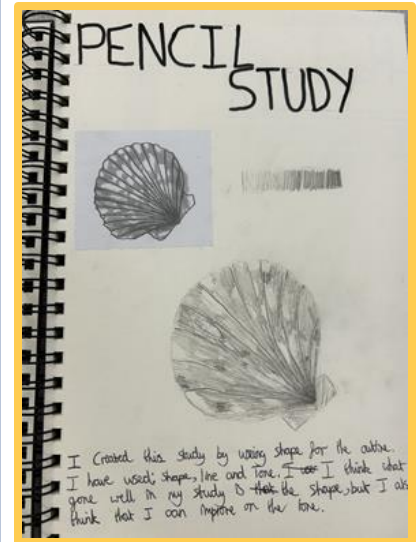 PENCIL
STUDY
I Created this study by using shape for the outline.
I have used; shape, line and tone. I think what
gone well in my study is the shape, but I als
think that I can improve on the tone.